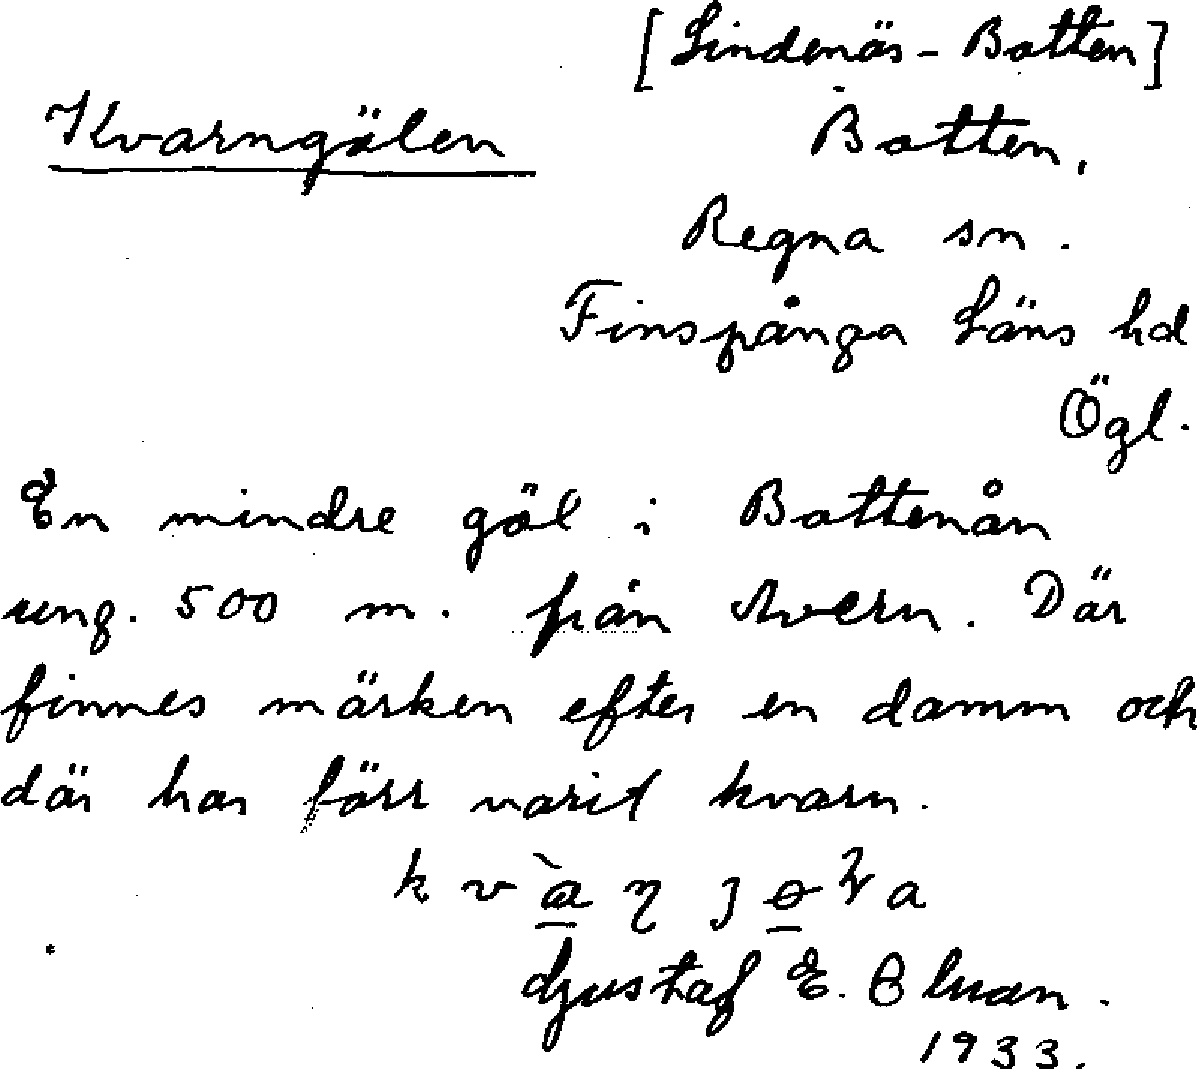 [Lindenäs-Botten]
Kvarngölen
Botten,
Regna sn.
Finspånga Läns hd
Ögl.
En mindre göl i Bottenån
ung. 500 m. från Avern. Där
finnes märken efter en damm och
där har förr varit kvarn.
Gustaf E.
1933.